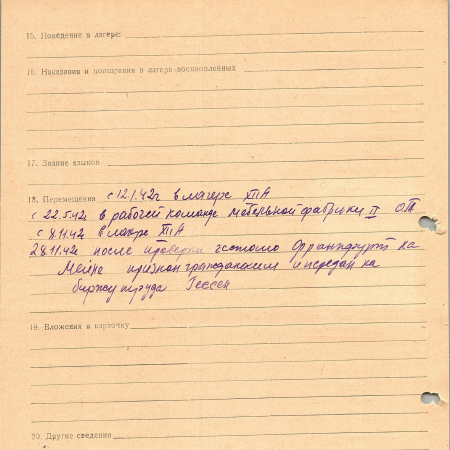 15. Поведение в лагере:
16. Наказания и поощрения в лагере военнопленных
17. Знание языков
18. Перемещения с 12.1.42г в лагере XII A
с 22.5.42 в рабочей команде мебельной фабрики II
с 8.11.42 в лагере XII A
28.11.42 после проверки гестапо Франкфурт на
Майне признан гражданским и передан на
биржу труда Гессен
19. Вложения в карточку
20. Другие сведения